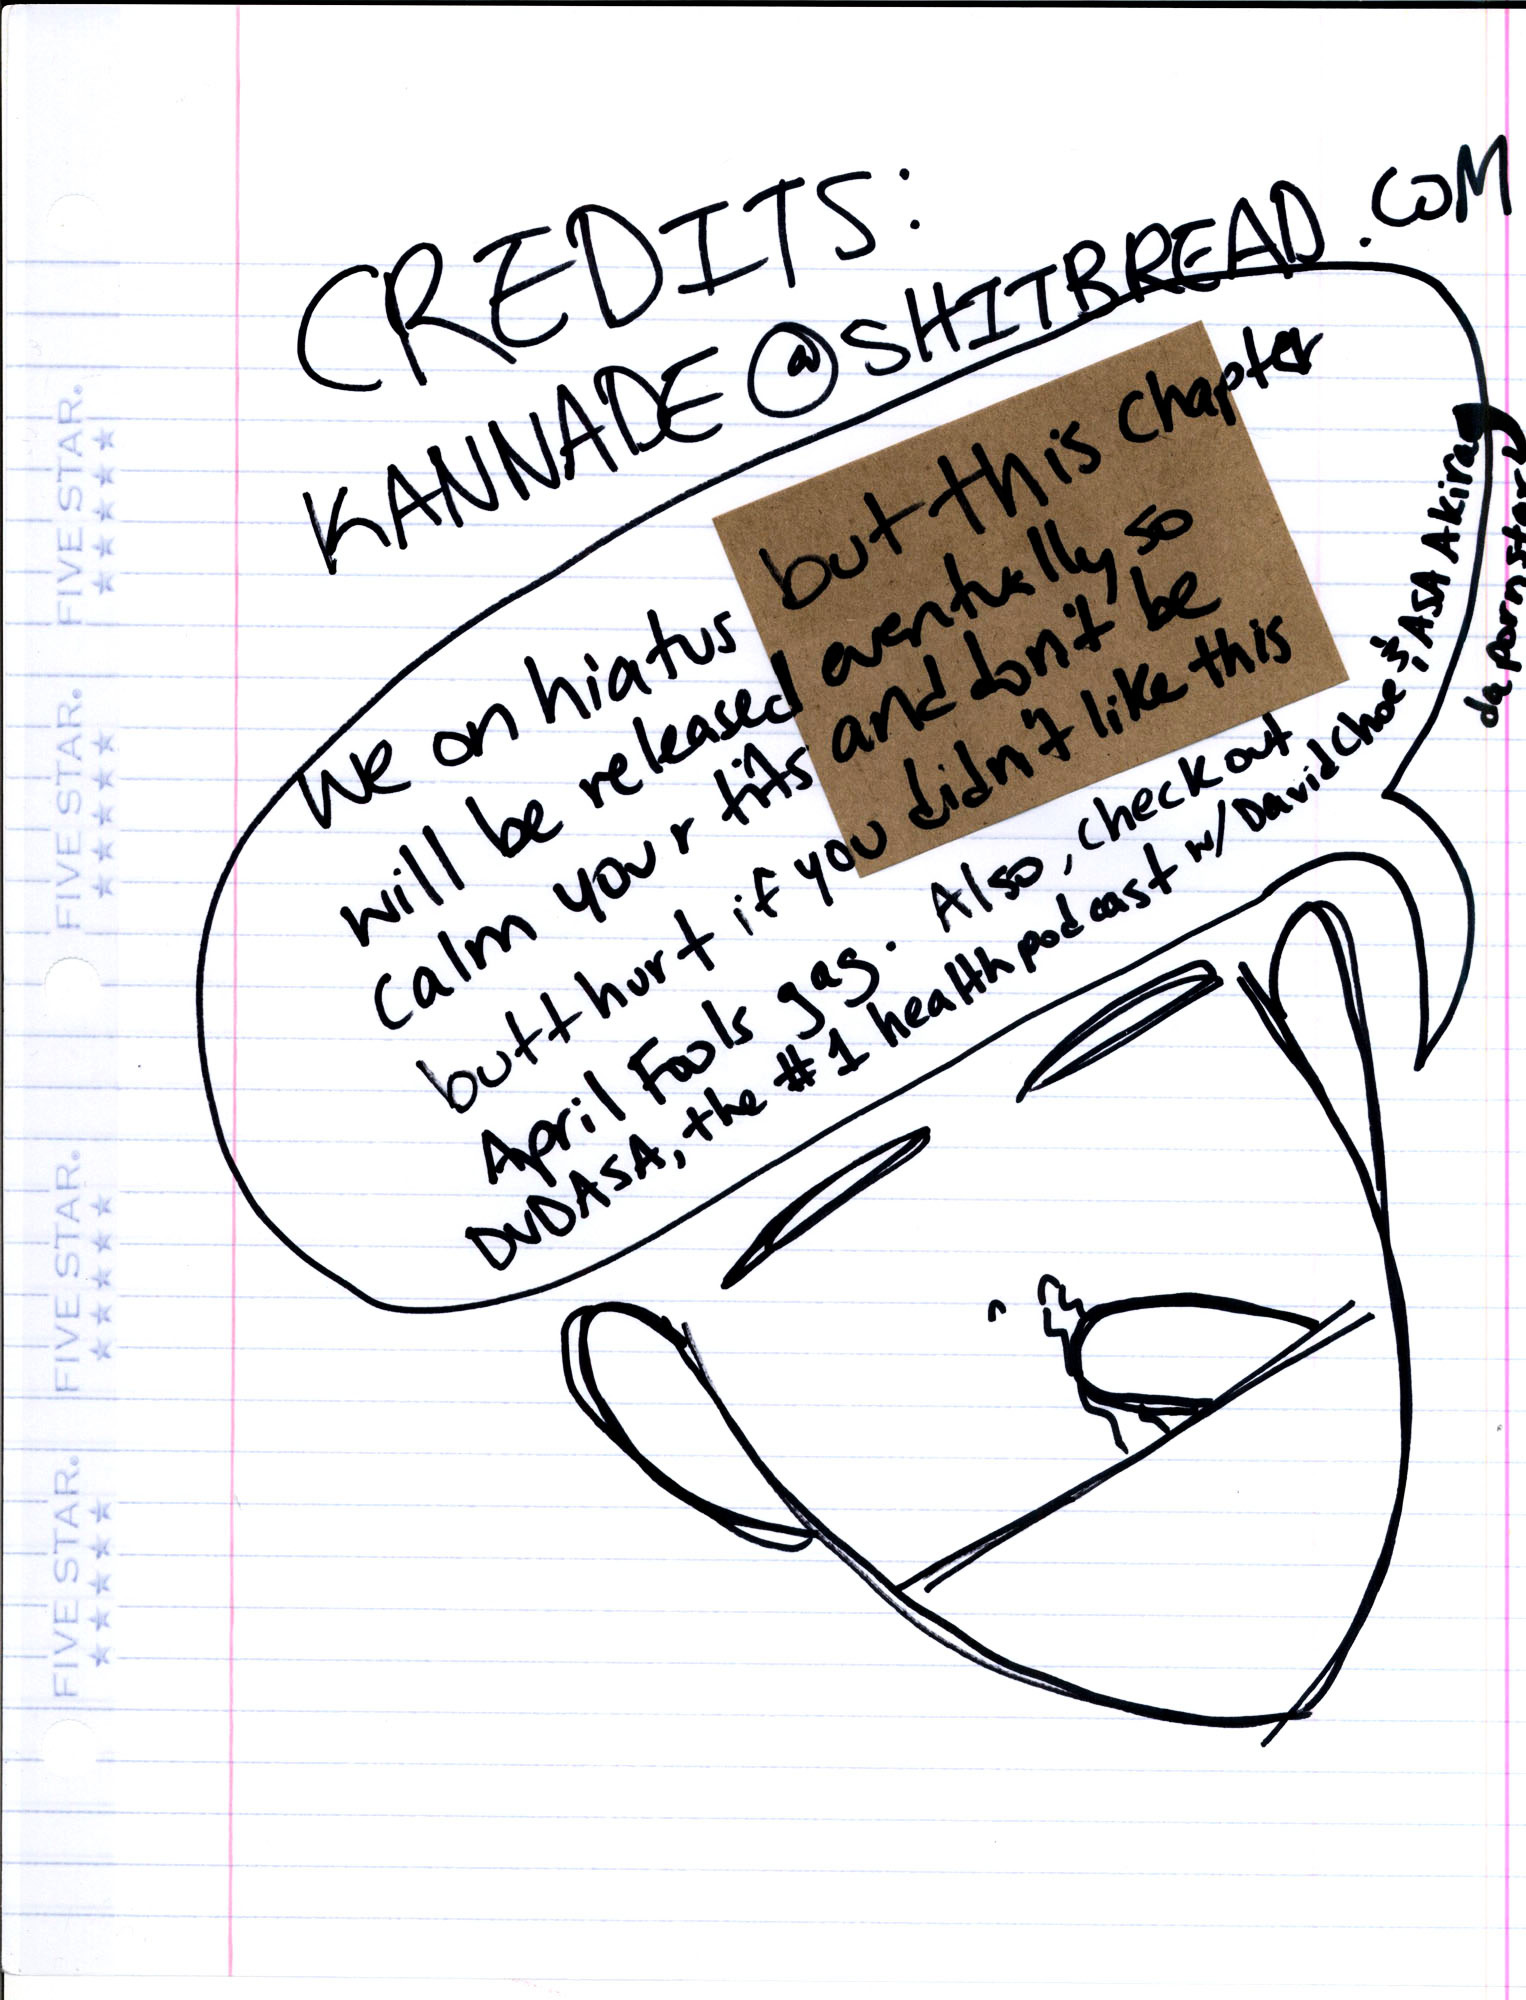 CREDITS:
KANNADE@SHITBREAD.COM
We on hiatus but this chapter
will be released eventually so
calm your tits and don't be
butthurt if you didn't like this
April Fools gag. Also, check out
DVDASA, the #1 health podcast w/ David Choe & ASA Akira
da pornstar
FIVE STAR.®
FIVE STAR.®
FIVE STAR.®
FIVE STAR.®